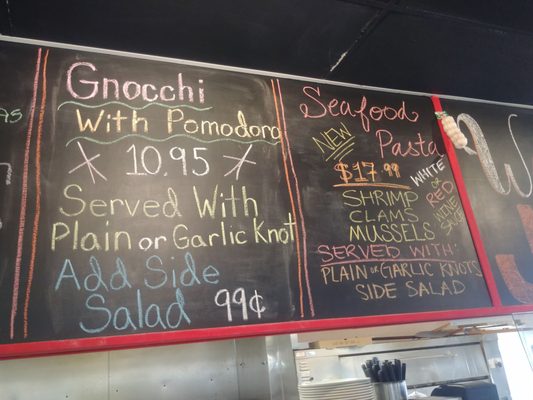 Gnocchi
With Pomodora
10.95
Served With
Plain or Garlic Knot
Add Side
Salad 99¢
Seafood
Pasta
NEW
$17.99
WHITE
or
RED
WINE
SAUCE
SHRIMP
CLAMS
MUSSELS
SERVED WITH:
PLAIN or GARLIC KNOTS
SIDE SALAD